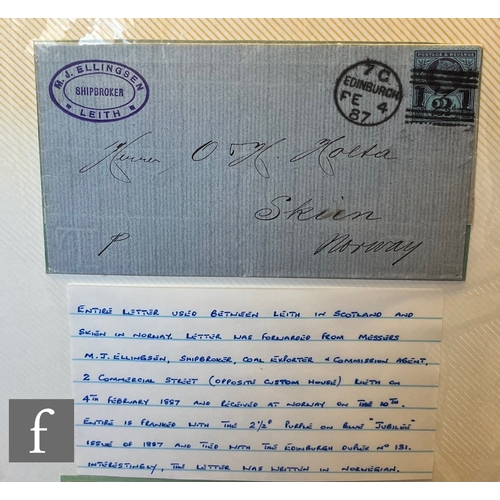 M. J. ELLINGSEN
SHIPBROKER
LEITH
7 C
EDINBURGH
FE 4
87
POSTAGE & REVENUE
Herrer O & H. Holta
Skien
Norway
P
ENTIRE LETTER USED BETWEEN LEITH IN SCOTLAND AND
SKIEN IN NORWAY. LETTER WAS FORWARDED FROM MESSERS
M.J. ELLINGSEN, SHIPBROKER, COAL EXPORTER & COMMISSION AGENT,
2 COMMERCIAL STREET (OPPOSITE CUSTOM HOUSE) LIETH ON
4TH FEBRUARY 1887 AND RECEIVED AT NORWAY ON THE 10TH.
ENTIRE IS FRANKED WITH THE 2½D PURPLE ON BLUE "JUBILEE"
ISSUE OF 1887 AND TIED WITH THE EDINBURGH DUPLEX NO 131.
INTERESTINGLY, THE LETTER WAS WRITTEN IN NORWEGIAN.
f